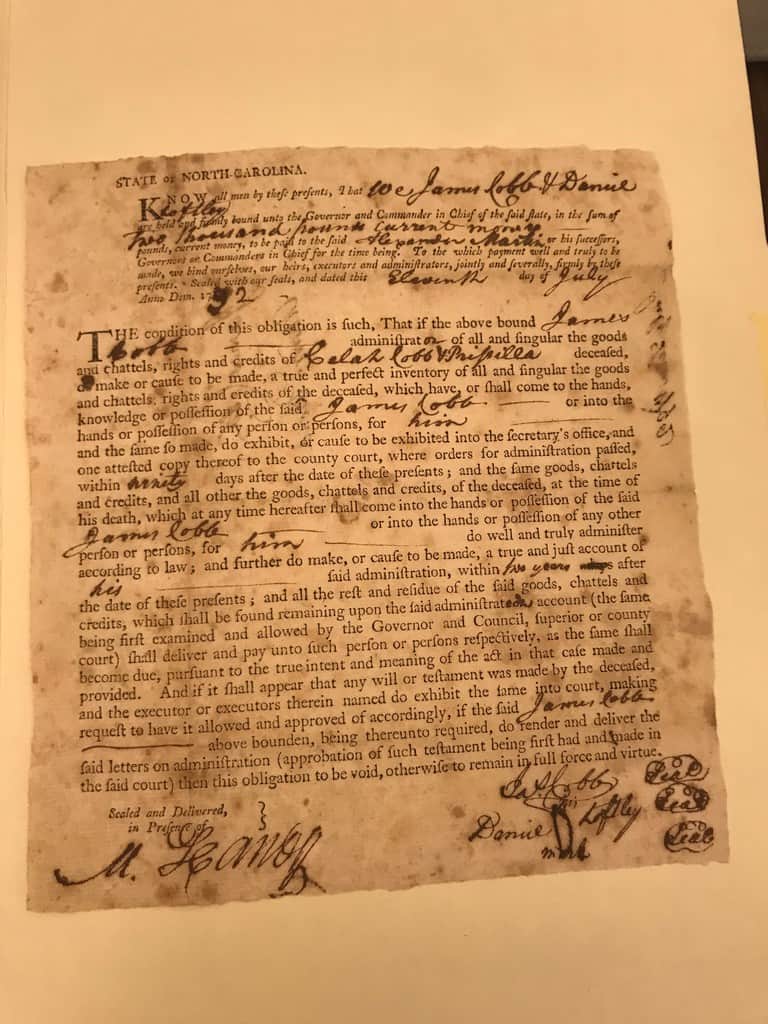 STATE OF NORTH-CAROLINA.
KNOW all men by these presents, That we James Cobb & Daniel
Loftley
are held and firmly bound unto the Governor and Commander in Chief of the said state, in the sum of
two thousand pounds current money
pounds, current money, to be paid to the said Alexander Martin or his successors,
Governors or Commanders in Chief for the time being. To the which payment well and truly to be
made, we bind ourselves, our heirs, executors and administrators, jointly and severally, firmly by these
presents. Sealed with our seals, and dated this Eleventh day of July
Anno Dom. 1792
THE condition of this obligation is such, That if the above bound James
Cobb administrator of all and singular the goods
and chattels, rights and credits of Celah Cobb & Prissilla deceased,
do make or cause to be made, a true and perfect inventory of all and singular the goods
and chattels, rights and credits of the deceased, which have, or shall come to the hands,
knowledge or possession of the said James Cobb or into the
hands or possession of any person or persons, for him
and the same so made, do exhibit, or cause to be exhibited into the secretary's office, and
one attested copy thereof to the county court, where orders for administration passed,
within ninety days after the date of these presents; and the same goods, chattels
and credits, and all other the goods, chattels and credits, of the deceased, at the time of
his death, which at any time hereafter shall come into the hands or possession of the said
James Cobb or into the hands or possession of any other
person or persons, for him do well and truly administer
according to law; and further do make, or cause to be made, a true and just account of
his said administration, within two years after
the date of these presents; and all the rest and residue of the said goods, chattels and
credits, which shall be found remaining upon the said administrators account (the same
being first examined and allowed by the Governor and Council, superior or county
court) shall deliver and pay unto such person or persons respectively, as the same shall
become due, pursuant to the true intent and meaning of the act in that case made and
provided. And if it shall appear that any will or testament was made by the deceased,
and the executor or executors therein named do exhibit the same into court, making
request to have it allowed and approved of accordingly, if the said James Cobb
above bounden, being thereunto required, do render and deliver the
said letters on administration (approbation of such testament being first had and made in
the said court) then this obligation to be void, otherwise to remain in full force and virtue.
Jas Cobb Seal
Sealed and Delivered,
in Presence of
his
Daniel Loftley Seal
mark Seal
M. Handy